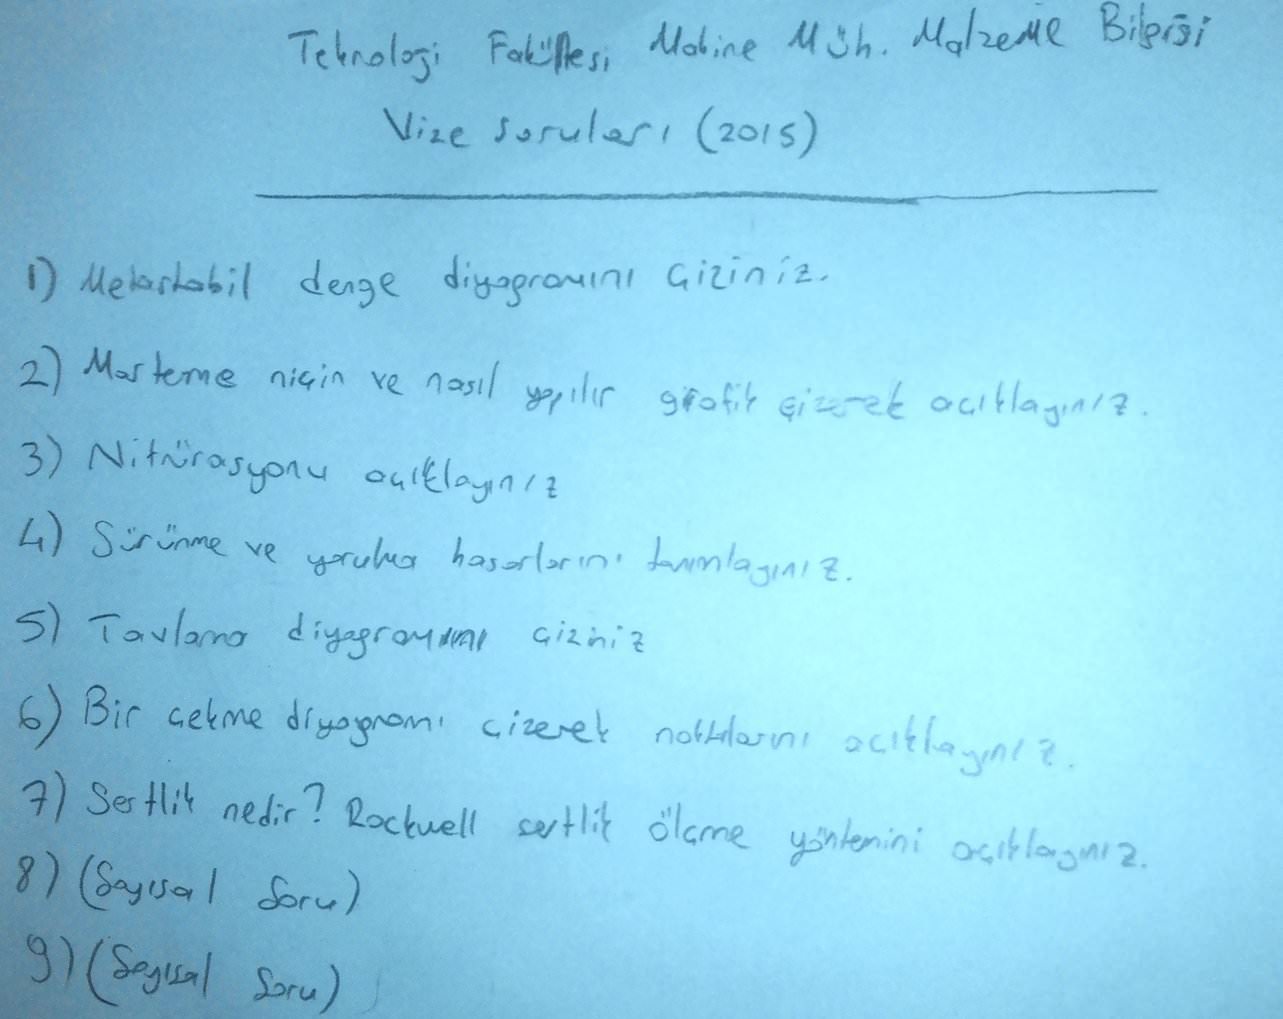 Teknoloji Fakültesi Makine Müh. Malzeme Bilgisi
Vize soruları (2015)
1) Metastabil denge diyagramını çiziniz.
2) Marteme niçin ve nasıl yapılır grafik çizerek açıklayınız.
3) Nitrürasyonu açıklayınız
4) Sürünme ve yorulma hasarlarını tanımlayınız.
5) Tavlama diyagramını çiziniz
6) Bir çekme diyagramı çizerek noktalarını açıklayınız.
7) Sertlik nedir? Rockwell sertlik ölçme yöntemini açıklayınız.
8) (Sayısal Soru)
9) (Sayısal Soru)